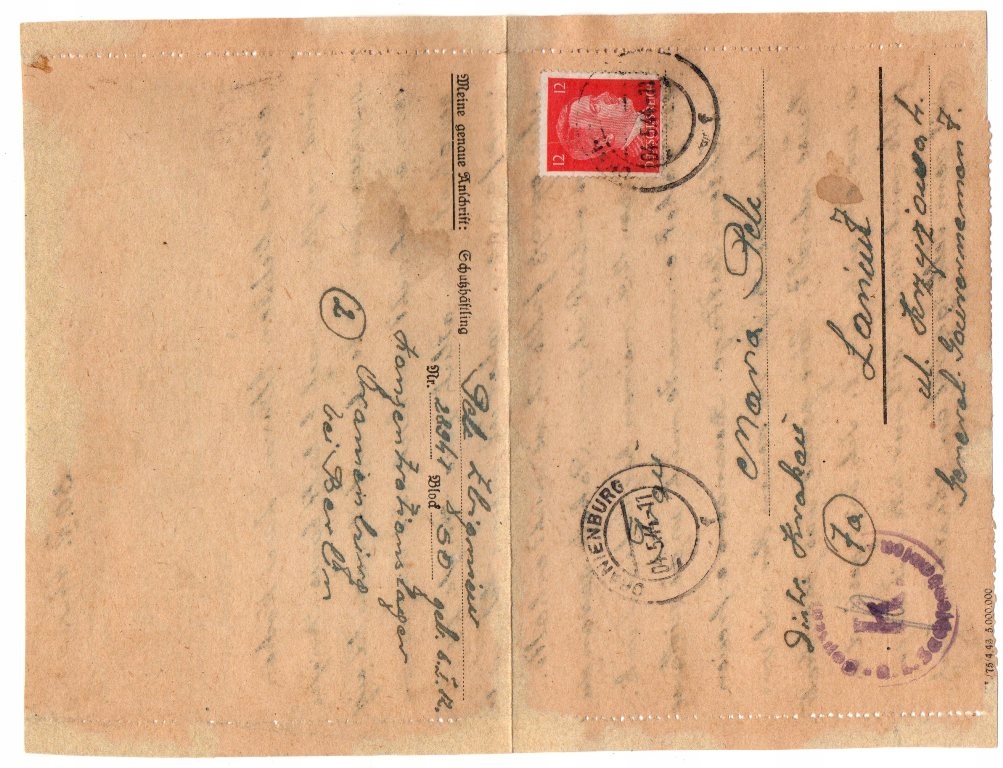 Maria Pelc
Łańcut
ul. Krzyżowa 4.
General Gouvernement.
Distr. Krakau
7a
ORANIENBURG
04.5.44.-11
12
12
Deutsches Reich
K
Meine genaue Anschrift: Schutzhäftling
Pelc Zbigniew
Nr. Block 50 geb.
Konzentrationslager
Oranienburg
bei Berlin
2
4.43 3.000.000